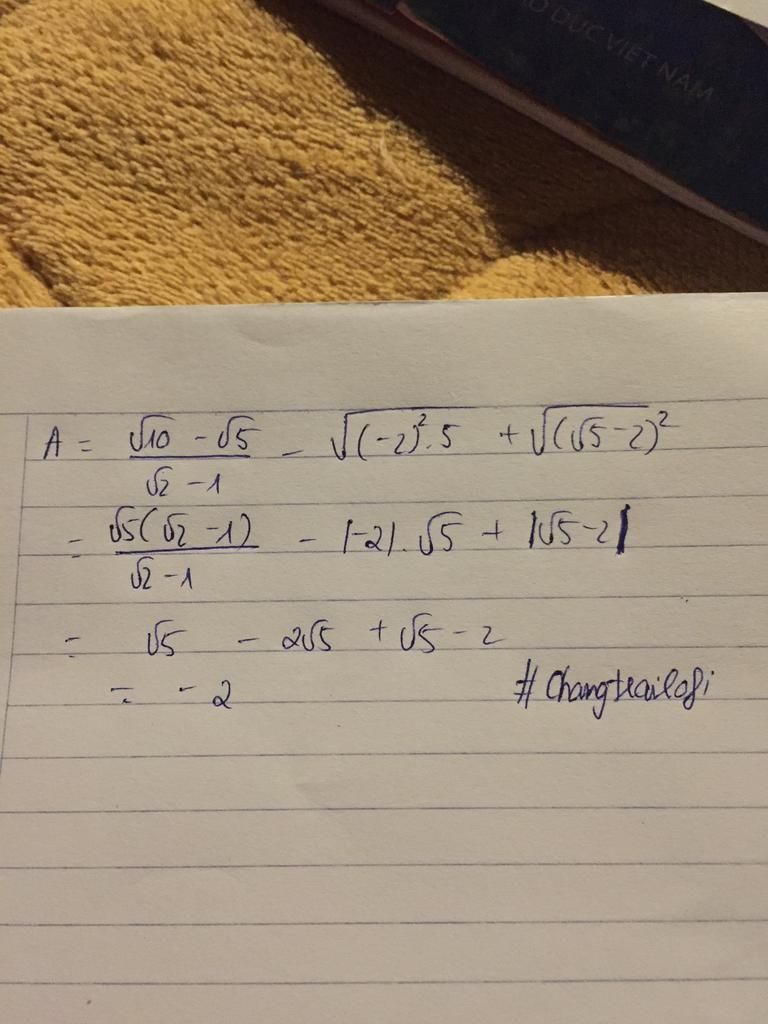 O DỤC VIỆT NAM
A = \frac{\sqrt{10} - \sqrt{5}}{\sqrt{2} - 1} - \sqrt{(-2)^2 . 5} + \sqrt{(\sqrt{5} - 2)^2}
= \frac{\sqrt{5}(\sqrt{2} - 1)}{\sqrt{2} - 1} - |-2| . \sqrt{5} + |\sqrt{5} - 2|
= \sqrt{5} - 2\sqrt{5} + \sqrt{5} - 2
= - 2
# Changtrailofi